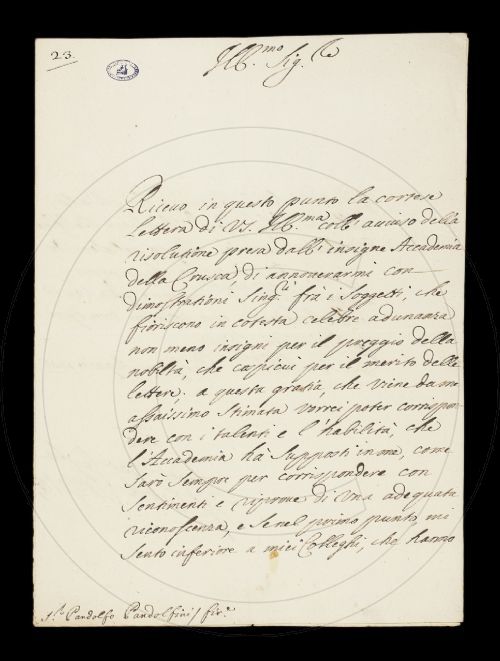 23.
Ill.mo Sig.re
Ricevo in questo punto la cortese
lettera di VS. Ill.ma coll' auviso della
risolutione presa dall' insigne Accademia
della Crusca di annoverarmi con
dimostrationi sing.ri frà i soggetti, che
fioriscono in cotesta celebre adunanza
non meno insigni per il preggio della
nobiltà, che cospicui per il merito delle
lettere; a questa gratia, che viene da me
assaissimo stimata vorrei poter corrispon-
dere con i talenti e l'habilità che
l'Accademia hà supposti in me, come
sarò sempre per corrispondere con
sentimenti e riprove di una adequata
riconoscenza, e se nel primo punto mi
sento inferiore a miei Colleghi, che hanno
S.r Pandolfo Pandolfini / fir.e